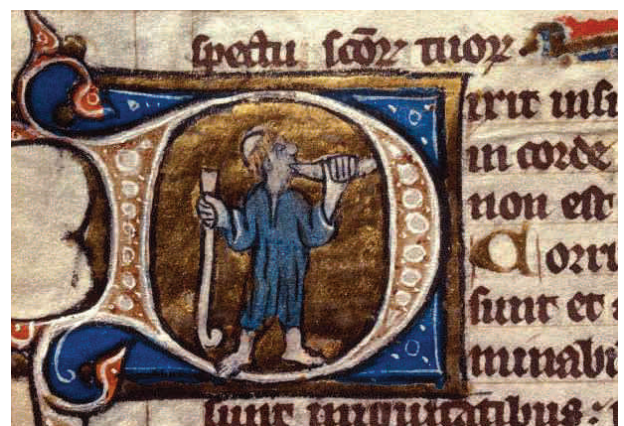 spectu scōꝝ tuoꝝ.
Dixit insi
in corde
non est
Corru
sunt et a
minabi
sunt iniquitatibus: